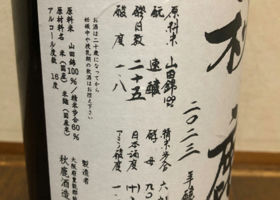 秋鹿
二〇二三年醸
原料米 山田錦100%
精米歩合 六〇
酛 速醸
酵母 九〇
醪日数 二十五
日本酒度
酸度 一・八
アミノ酸度
お酒は二十歳になってから
妊娠中や授乳期の飲酒はお控え下さい
原料米 山田錦 100%/精米歩合60%
原材料名 米(国産) 米麹(国産米)
アルコール度数 16度
製造者
大阪府豊能郡能
秋鹿酒造